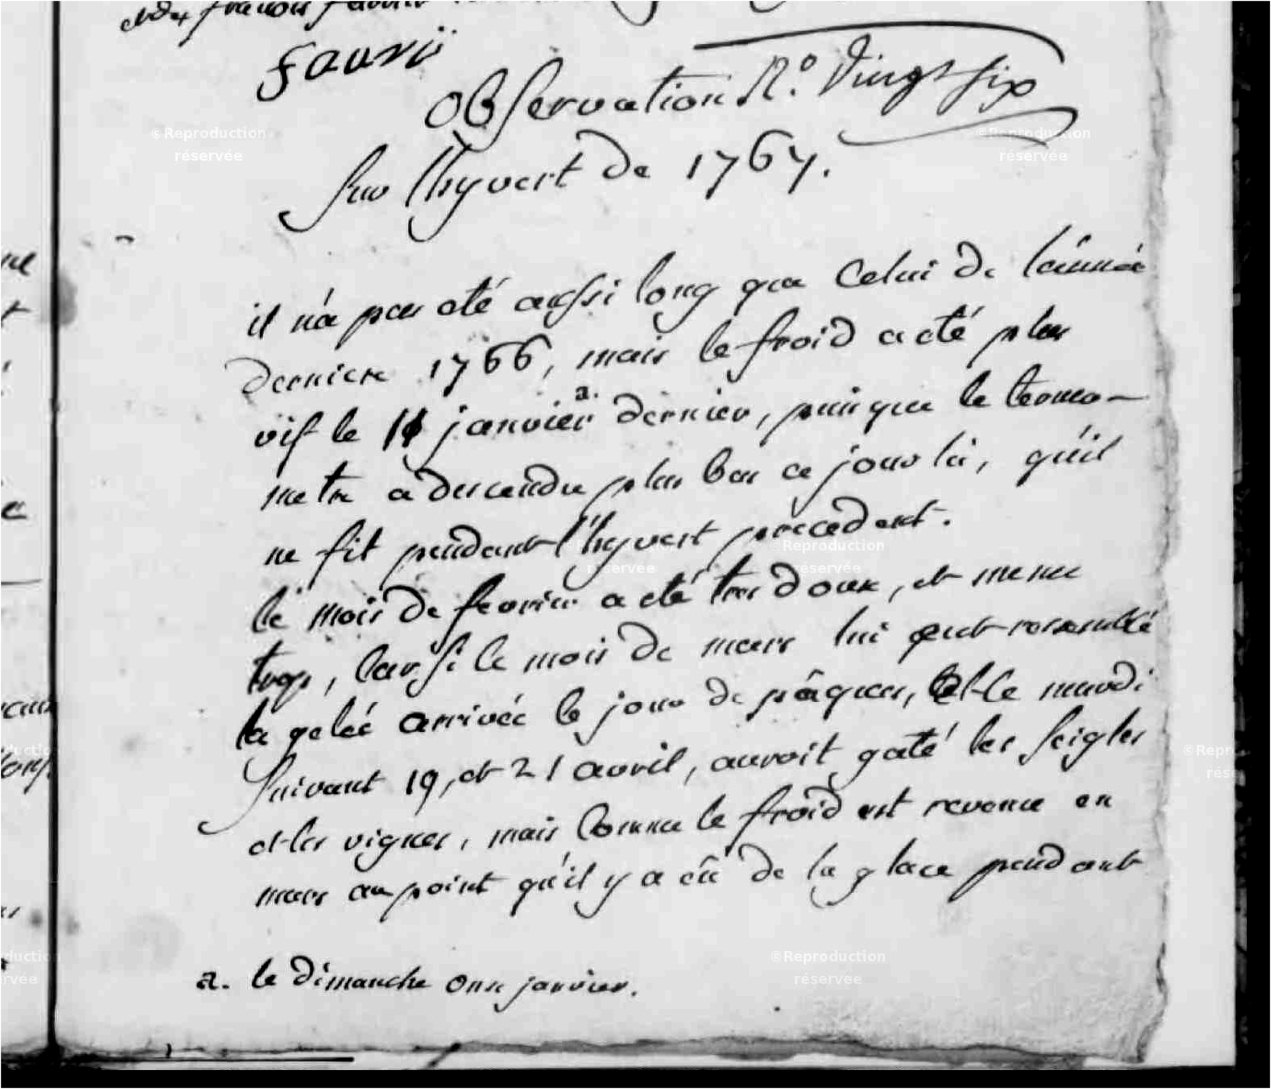 Observation N.° Vingt six
Sur l'hyvert de 1767.
il n'a pas eté aussi long que Celui de l'année
derniere 1766, mais le froid a eté plus
vif le 11 janvier a. dernier, puisque le termo-
metre a descendu plus bas ce jour la, qu'il
ne fit pendant l'hyvert precedent.
le mois de fevrier a eté tres doux, et meme
trop, Car si le mois de mars lui eut ressemblé
la gelée arrivée le jour de pâques, et le mardi
suivant 19, et 21 avril, auroit gaté les seigles
et les vignes, mais Comme le froid est revenu en
mars au point qu'il y a eû de la glace pendant
a. le dimanche onze janvier.
©Reproduction
réservée